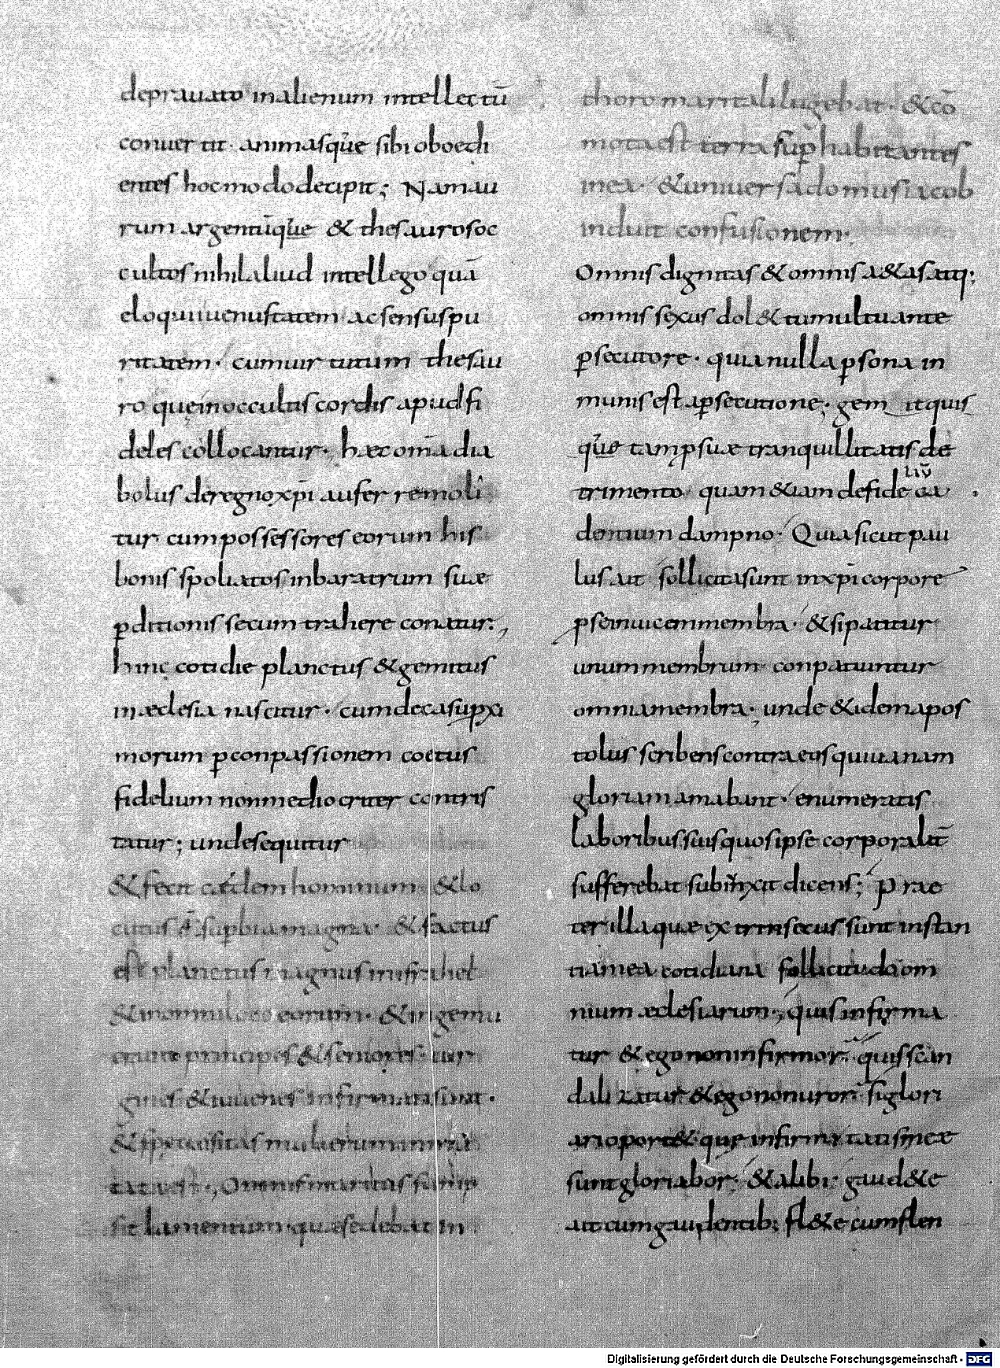 deprauato inalienum intellectū
conuertit. animasq̄ue sibi oboedi
entes hocmododecipit; Namau
rum argentūq̄ue & thesaurosoc
cultos nihilaliud intellego quā
eloquiuenustatem acsensuspu
ritatem. cumuirtutum thesau
ro queinoccultis cordis apudfi
deles collocantur. haec omīa dia
bolus deregnoxp̄i auferremoli
tur cumpossessores eorum his
bonis spoliatos inbaratrum suae
p̄ditionis secum trahere conatur.,
hinc cotidie planctus &gemitus
inaeclesia nascitur. cumdecasup̄xi
morum p̄conpassionem coetus
fidelium nonmediocriter contris
tatur; undesequitur
&fecit caedem hominum &lo
cutus ē sup̄biamagna. &factus
est planctus magnus inisrahel
&inomniloco eorum. &ingemu
erunt principes &seniores uir
gines &iuuenes infirmatisunt.
&speciositas mulierum inmu
tataest., Omnismaritus sump
sit lamentum quaesedebat in
thoro maritali lugebat. &cō
motaest terra sup̄ habitantes
inea. &uniuersadomusiacob
induit confusionem.
Omnis dignitas &omnis a&asatq;
omnis sexus dol& tumultuante
p̄secutore. quianulla p̄sona in
munis est ap̄secutione. gem itquis
q̄ue tam p̄suae tranquillitatis de
trimento. quam &iam defide ca
liū
dentium dampno. Quiasicut pau
lus ait sollicitasunt inxp̄i corpore
p̄seinuicemmembra. &sipatitur
unummembrum conpatiuntur
omniamembra. unde &idemapos
tolus scribenscontraeos quiuanam
gloriamamabant. enumeratis
laboribussuis quosipse corporalit̄
sufferebat subinxit dicens; Prae
ter illa quae extrinsecus sunt instan
tiamea cotidiana sollicitudoom
nium aeclesiarum., quis infirma
tur &egononinfirmor. quis scan
dalizatur &egononuror. siglori
arioport& que infirmitatismeae
suntgloriabor. &alibi. gaud&e
ait cumgaudentib; fl&e cumflen
Digitalisierung gefördert durch die Deutsche Forschungsgemeinschaft - DFG